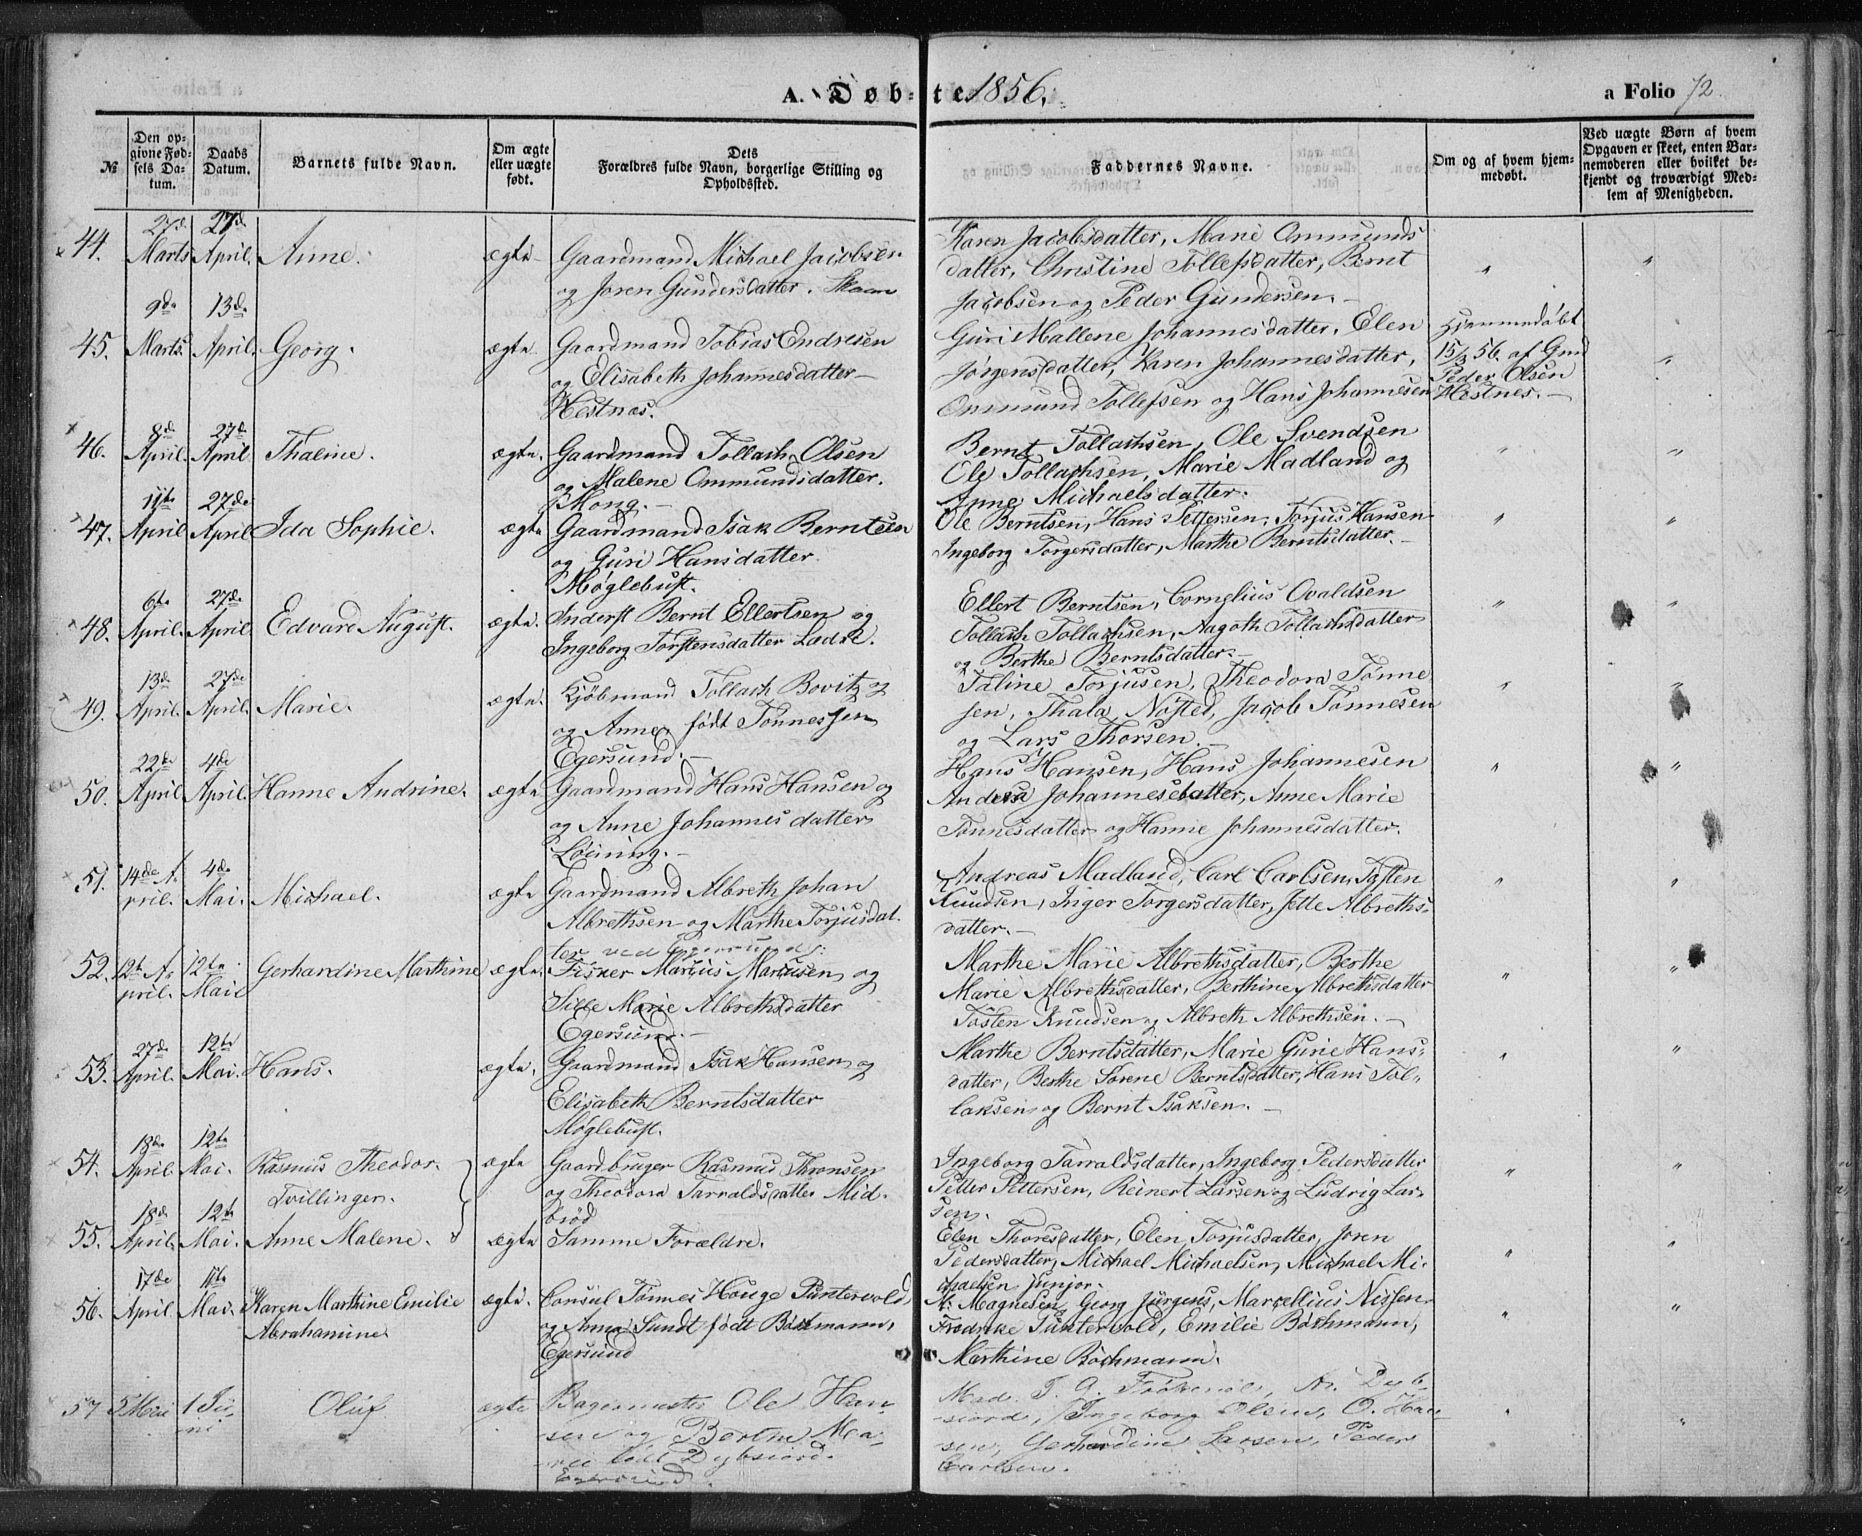 A. Døb-te 1856.
a Folio 72.
№
Den opgivne Fødsels Datum.
Daabs Datum.
Barnets fulde Navn.
Om ægte eller uægte født.
Dets Forældres fulde Navn, borgerlige Stilling og Opholdssted.
Faddernes Navne.
Om og af hvem hjemmedøbt.
Ved uægte Børn af hvem Opgaven er skeet, enten Barnemoderen eller hvilket bekjendt og troværdigt Medlem af Menigheden.
44. 27de Marts 27de April. Anne. ægte Gaardmand Michael Jacobsen
og Joren Gundersdatter.
Karen Jacobsdatter, Marie Ommunds
datter, Christine Tollefsdatter, Bernt
Jacobsen og Peder Gundersen.
45. 9de Marts. 13de April. Georg. ægte Gaardmand Tobias Endresen
og Elisabeth Johannesdatter
Hestnes.
Guri Mallene Johannesdatter, Elen
Jørgensdatter, Karen Johannesdatter,
Ommund Tollefsen og Hans Johannesen
Hjemmedøbt
15/3 56. af Gmd
Peder Olsen
Hestnes.
46. 8de April. 27de April. Thaline. ægte. Gaardmand Tollach Olsen
og Malene Ommundsdatter.
Mong.
Bernt Tollachsen, Ole Svendsen
Ole Tollachsen, Marie Madland og
Anne Michaelsdatter.
47. 11te April 27de April Ida Sophie. ægte Gaardmand Isak Berntsen
og Guri Hansdatter
Møglebust.
Ole Berntsen, Hans Pettersen, Torjus Hansen
Ingeborg Torgersdatter, Marthe Berntsdatter.
48. 6te April. 27de April. Edvard August. ægte. Inderst Bernt Ellertsen og
Ingeborg Torstensdatter Ladre.
Ellert Berntsen, Cornelius Ovaldsen
Tollach Tollachsen, Aagoth Tollachsdatter
og Berthe Berntsdatter.
49. 13de April. 27de April. Marie. ægte. Kjøbmand Tollach Bovitz og
og Anne født Tønnessen
Egersund.
Taline Torjusen, Theodora Tønne
sen, Thala Nøsted, Jacob Tønnesen
og Lars Thorsen.
50. 22de April 4de April. Hanne Andrine. ægte Gaardmand Hans Hansen og
og Anne Johannesdatter
Løining.
Hans Hansen, Hans Johannesen
Andrea Johannesdatter, Anne Marie
Tønnesdatter og Hanne Johannesdatter.
51. 14de A-
pril. 4de Mai. Michael. ægte Gaardmand Albreth Johan
Albrethsen og Marthe Torjusdat-
ter ved Egersund.
Andreas Madland, Carl Carlsen, Tosten
Knudsen, Inger Torgersdatter, Jette Albreths-
datter.
52. 12te A-
pril. 12te Mai Gerhardine Marthine ægte. Fisker Marcus Marcusen og
Sille Marie Albrethsdatter
Egersund.
Marthe Marie Albrethsdatter, Berthe
Marie Albrethsdatter, Berthine Albrethsdatter
Tosten Knudsen og Albreth Albrethsen.
53. 27de April. 12te Mai. Hans. ægte. Gaardmand Isak Hansen og
Elisabeth Berntsdatter
Møglebust.
Marthe Berntsdatter, Marie Gurie Hans-
datter, Berthe Sørene Berntsdatter, Hans Tol-
laksen og Bernt Isaksen.
54. 18de April 12te Mai. Rasmus Theodor.
Tvillinger. ægte Gaardbruger Rasmus Thronsen
og Theodora Tarraldsdatter Mid-
brød
Ingeborg Tarraldsdatter, Ingeborg Pedersdatter
Petter Pettersen, Reinert Larsen og Ludvig Lar-
sen.
55. 18de April. 12te Mai. Anne Malene. ægte Samme Forældre.
Elen Thoresdatter, Elen Torjusdatter, Joren
Pedersdatter, Michael Michaelsen, Michael Mi-
chaelsen junjor.
56. 17de April. 11te Mai. Karen Marthine Emilie
Abrahamine ægte. Consul Tønnes Houge Puntervold
og Anna Sundt født Bøchmann,
Egersund
M. Magnesen, Georg Jürgens, Marcellius Nissen
Fredrike Puntervold, Emilie Bøchmann,
Marthine Bøchmann.
57 5 Mai 1 Ju-
ni Oluf ægte Bagermester Ole Han-
sen og Berthe Ma-
rie født Dybsiord.
Egersund.
Mad. T. G. , A. Dyb-
siord, Ingeborg Olsen, O. Han-
sen, Gerhardine Larsen, Peder
Carlsen.